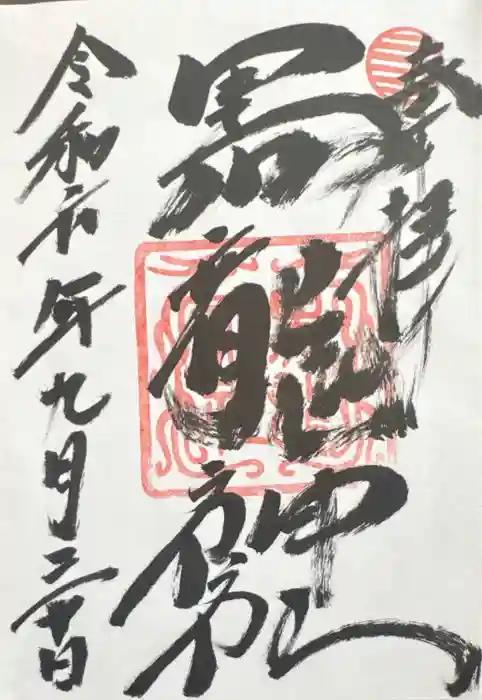 奉拝
黒龍神社
令和元年九月二十日